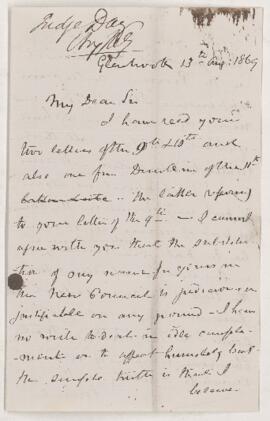 Judge Day
Glenbrook 13th Aug. 1869
My Dear Sir
I have read your
two letters of the 9th & 10th and
also one from of the 11th
the latter referring
to your letter of the 9th — I cannot
agree with you that the substitu-
tion of my name for yours in
the New Council is judicious or
justifiable on any ground — I have
no wish to deal in idle compli-
ments or to affect humility but
the simple truth is that I
believe